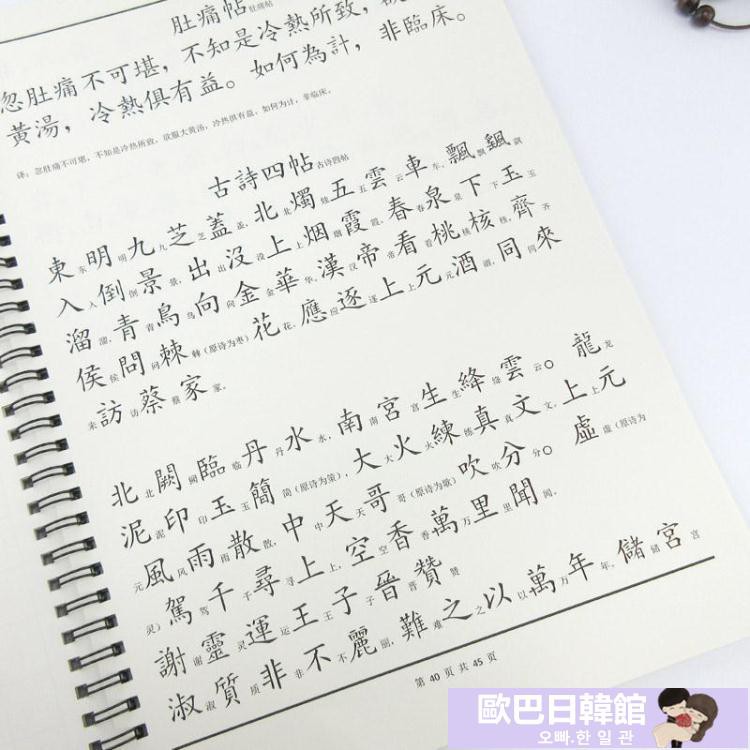 肚痛帖 肚痛帖
忽肚痛不可堪，不知是冷熱所致，
黃湯，冷熱俱有益。如何為計，非臨床。
译：忽肚痛不可堪，不知是冷热所致，欲服大黄汤，冷热俱有益，如何为计，非临床。
古詩四帖 古诗四帖
東东明明九九芝芝蓋盖，北北燭烛五五雲云車车，飄飘
入入倒倒景景，出出沒没上上烟烟霞霞，春春泉泉下下玉玉
溜溜，青青鳥鸟向向金金華华，漢汉帝帝看看桃桃核核，齊齐
侯侯問问棘棘（原诗为枣）花花，應应逐逐上上元元酒酒，同同來
来訪访蔡蔡家家。
北北闕阙臨临丹丹水水，南南宮宫生生絳绛雲云。龍龙
泥泥印印玉玉簡简（原诗为策），大大火火練练真真文文，上上元
元風风雨雨散散，中中天天哥哥（原诗为歌）吹吹分分。虛虚（原诗为
灵）駕驾千千尋寻上上，空空香香萬万里里聞闻。
謝谢靈灵運运王王子子晉晋贊赞
淑淑質质非非不不麗丽，難难之之以以萬万年年，儲储宮宫
第 40 页 共 45 页
歐巴日韓館
오빠.한 일 관